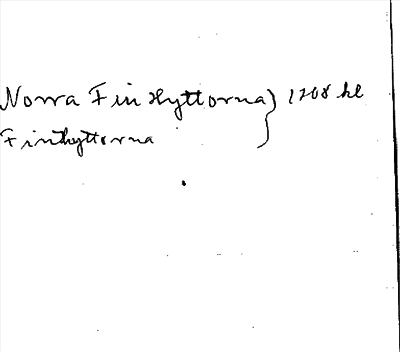 Norra Finhyttorna } 1708 kl
Finhyttorna